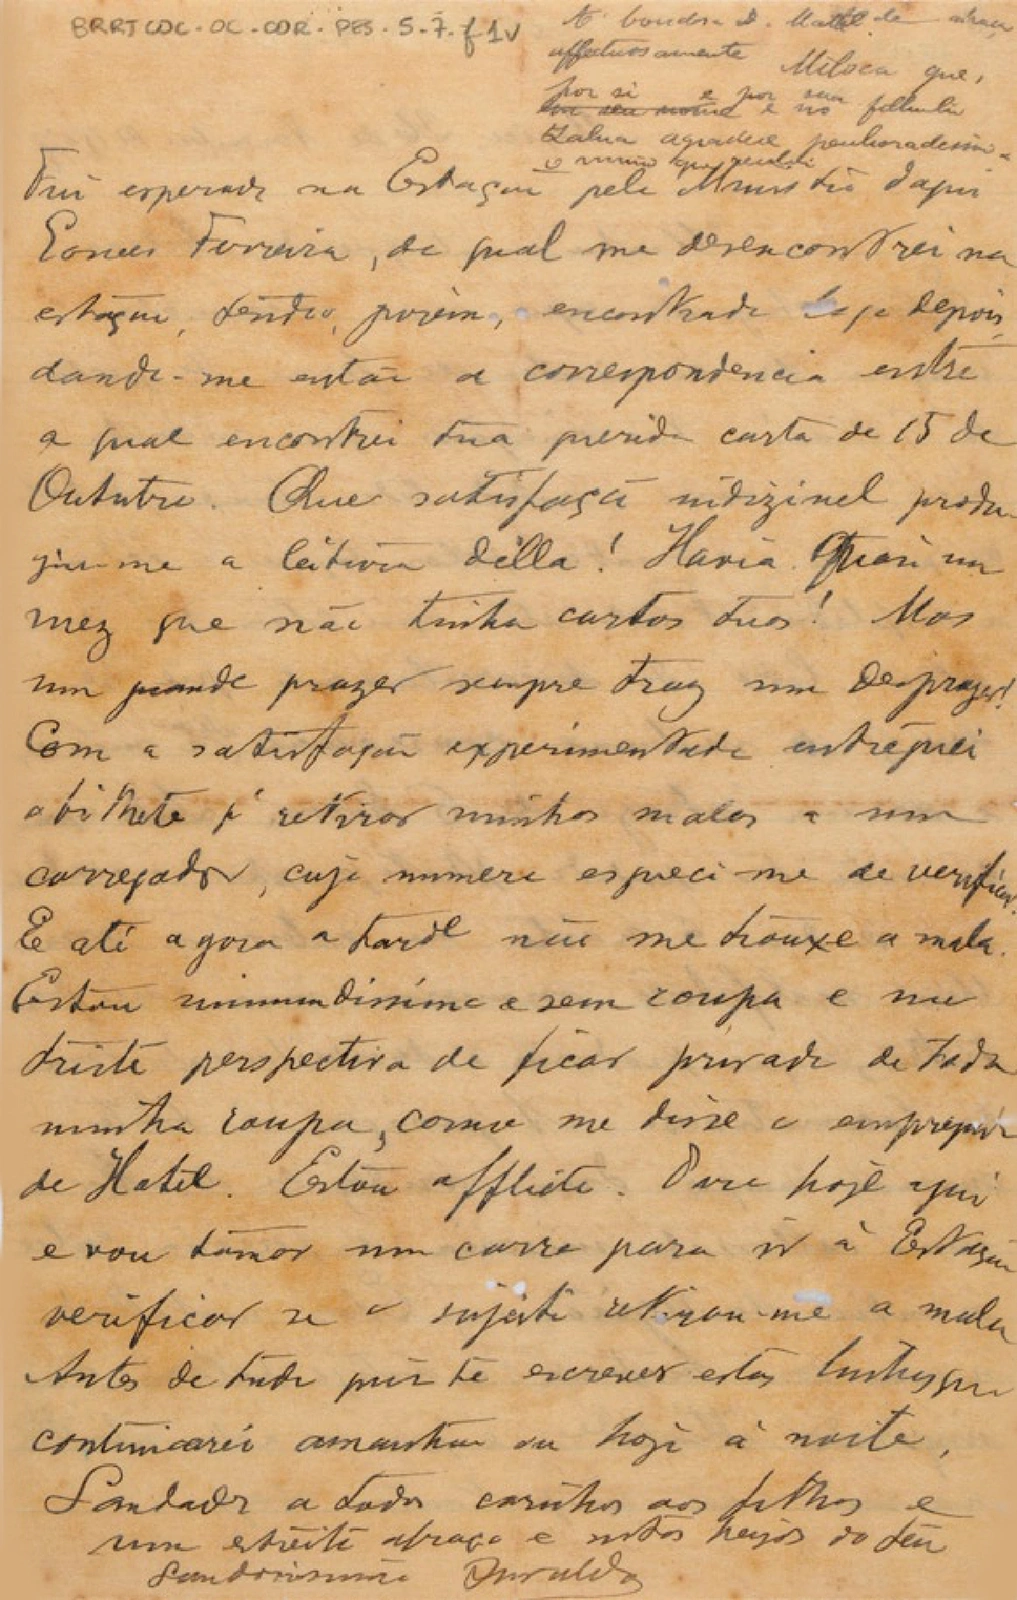 BRRJCOC-OC-COR-PES-5-7. f 1v
A' bondosa D. Mathilde abraça
affectuosamente Miloca que,
por si e por seu
em seu nome e no filhinho
agradece penhoradissima
o mimo que
Fui esperado na Estação pelo Ministro daqui
Ferreira, do qual me desencontrei na
estação, sendo, porém, encontrado logo depois,
dando-me então a correspondencia entre
a qual encontrei tua querida carta de 15 de
Outubro. Que satisfação indizivel produ-
ziu-me a leitura della! Havia quasi um
mez que não tinha cartas tuas! Mas
um grande prazer sempre traz um desprazer!
Com a satisfação experimentada entreguei
o bilhete p' retirar minhas malas a um
carregador, cujo numero esqueci-me de verificar.
E até agora a tarde não me trouxe a mala.
Estou immundissimo e sem roupa e na
triste perspectiva de ficar privado de toda
minha roupa, como me disse o empregado
do Hotel. Estou afflicto. hoje aqui
e vou tomar um carro para ir á Estação
verificar se o sujeito retirou-me a mala
Antes de tudo quiz te escrever estas linhas que
continuarei amanhã ou hoje á noite.
Saudades a todos carinhos aos filhos e
um estreito abraço e muitos beijos do teu
Saudosissimo Oswaldo